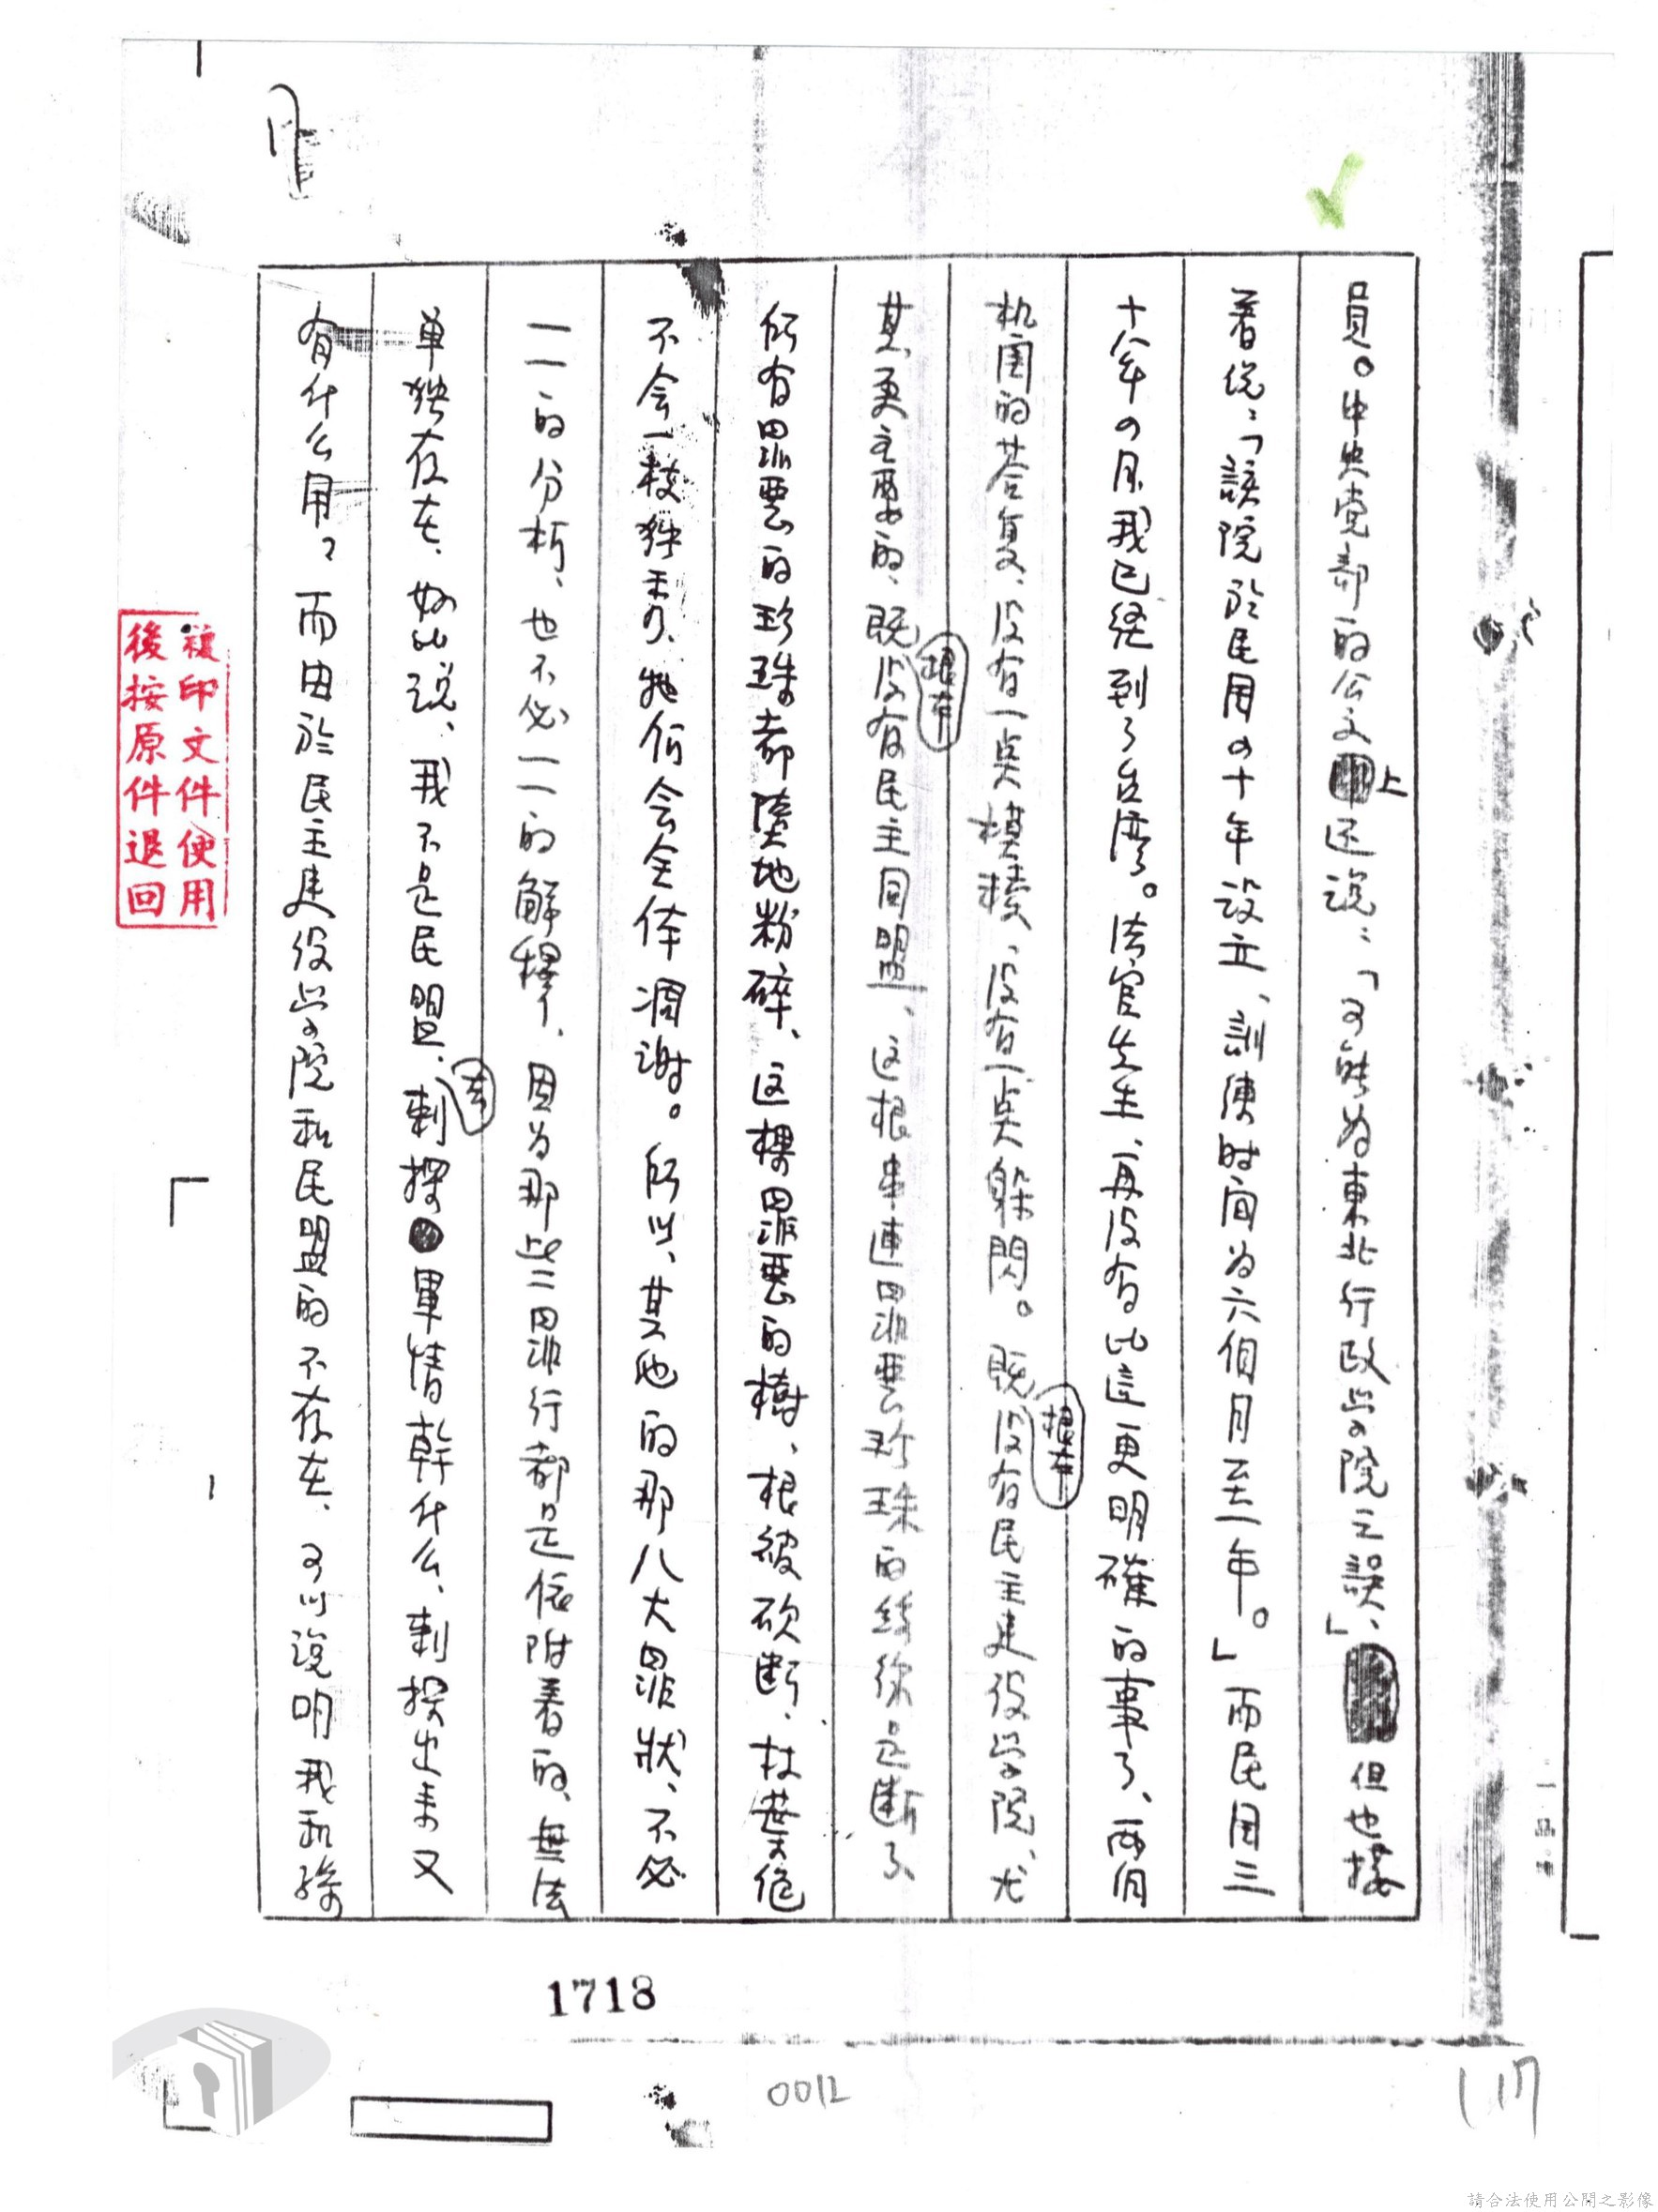 員。中央党部的公文上还说：「可能为東北行政学院之誤」、但也接
着说：「該院於民国四十年设立、訓練时间为六個月至一年。」而民国三
十八年四月我已经到了台湾。法官先生、再没有比這更明確的事了、两個
机関的荅复、没有一点模棱、没有一点躲閃。既根本没有民主建设学院、尤
其更主要的、既根本没有民主同盟、这根串連罪惡珍珠的絲線是断了、
所有罪悪的珍珠都墮地粉碎、这棵罪悪的樹、根被砍断、枝葉絕
不会一枝独秀、她们会全体凋谢。所以、其他的那八大罪狀、不必
一一的分析、也不必一一的解釋、因为那些罪行都是依附着的、無法
单独存在、好比说、我不是民盟、去刺探軍情幹什么、刺探出来又
有什么用？而由於民主建设学院和民盟的不存在、可以说明我和孫
複印文件使用
後按原件退回
1718
0012
117
請合法使用公開之影像